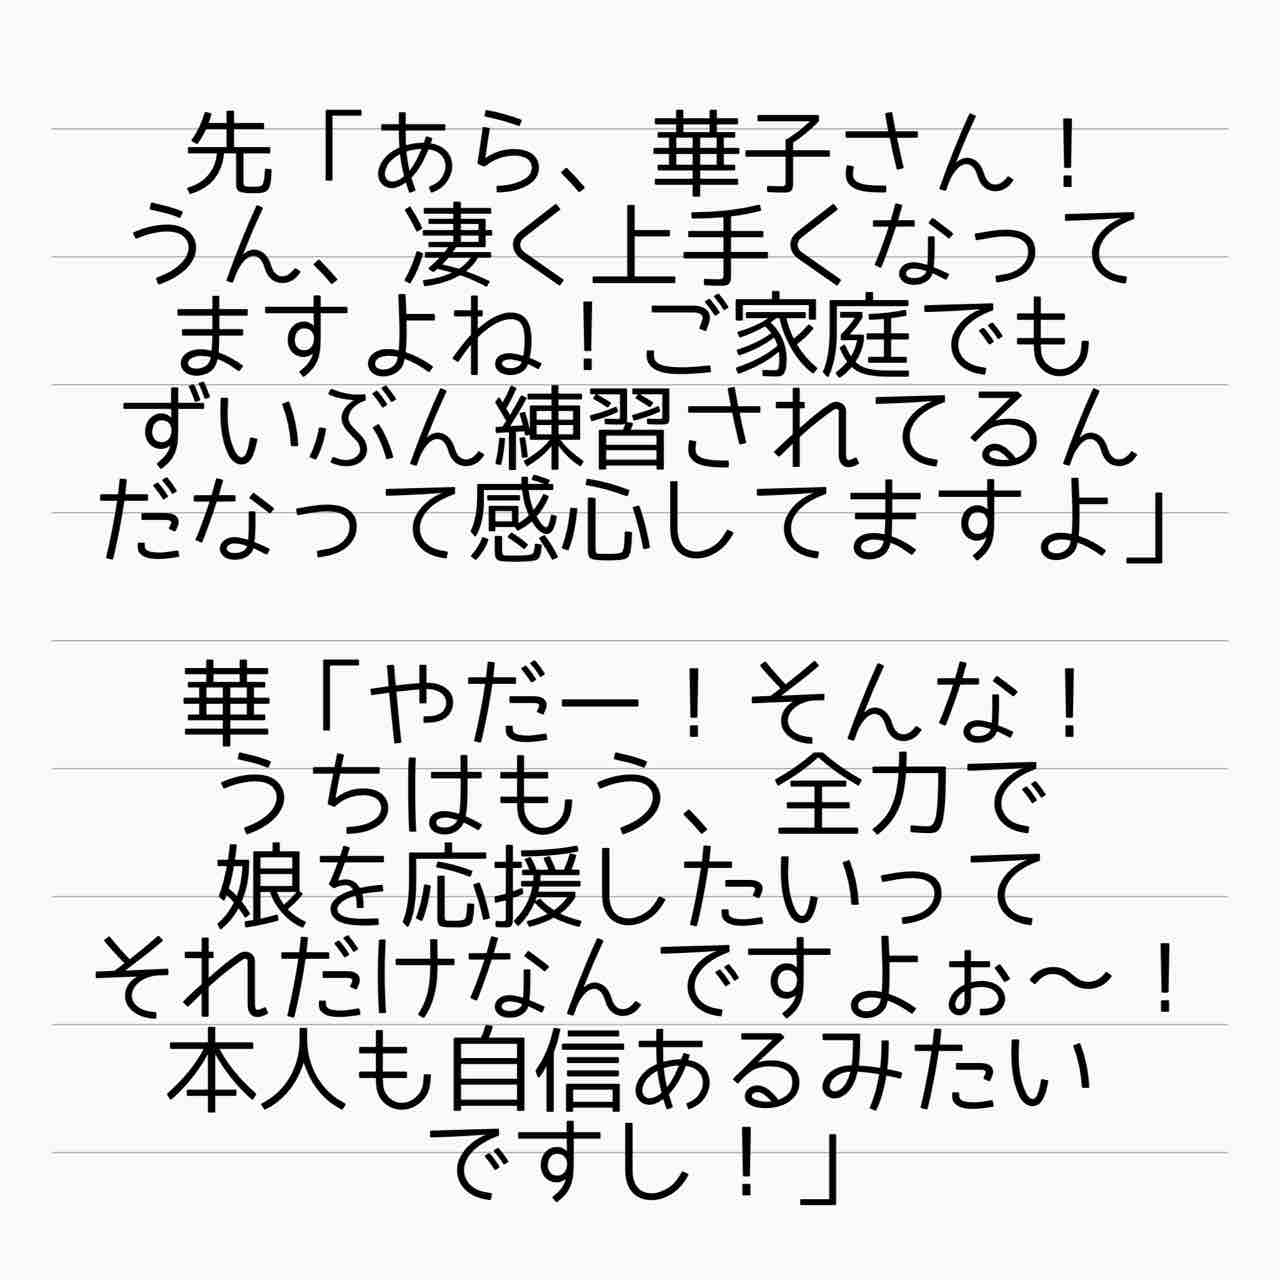 先「あら、華子さん！
うん、凄く上手くなって
ますよね！ご家庭でも
ずいぶん練習されてるん
だなって感心してますよ」
華「やだー！そんな！
うちはもう、全力で
娘を応援したいって
それだけなんですよぉ〜！
本人も自信あるみたい
ですし！」